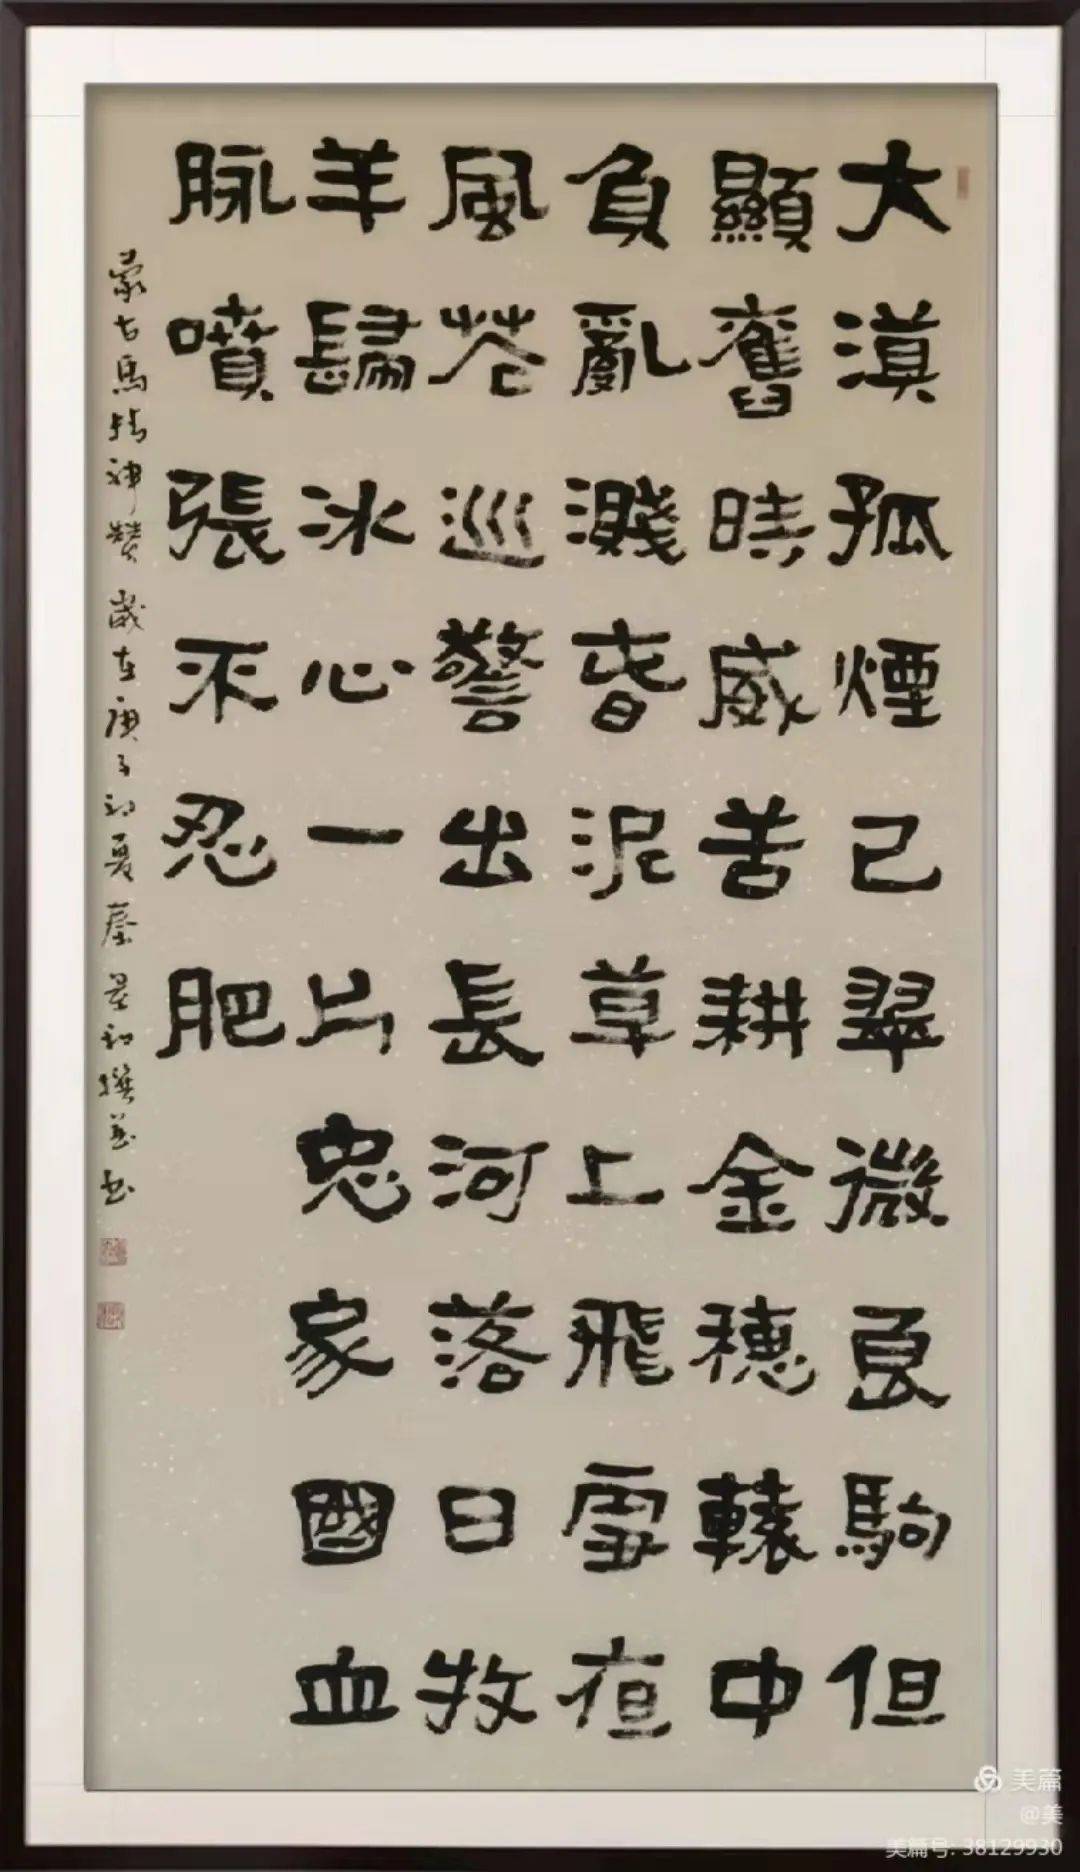 大漠孤煙已翠微良駒但
顯舊時威苦耕金穗轅中
負亂濺春泥草上飛雪夜
風花巡警出長河落日牧
羊歸冰心一片忠家國血
脉噴張不忍肥
蒙古馬精神贊 歲在庚子初夏 撰並書
美篇
@美
美篇号: 38129930